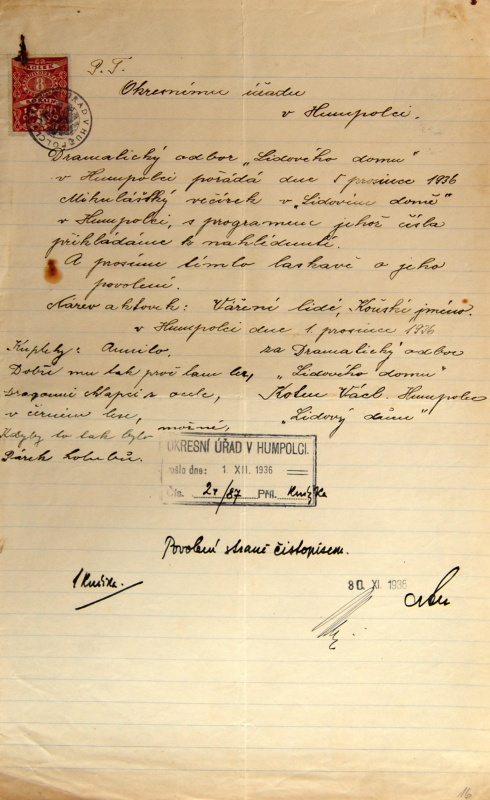 P. T.
Okresnímu úřadu
v Humpolci.
Dramatický odbor „Lidového domu"
v Humpolci pořádá dne 5 prosince 1936
Mikulášský večírek v „Lidovém domě"
v Humpolci, s programem jehož čísla
přikládáme k nahlédnutí.
A prosíme tímto laskavě o jeho
povolení.
Název aktovek: Vážení lidé, Koňské jméno.
v Humpolci dne 1. prosince 1936
Kuplety:
za Dramatický odbor
Dobře mu tak proč tam lez,
„Lidového domu"
Václ. Humpolec
v černém lese,
„Lidový dům"
Kdyby to tak bylo možné,
Párek holubů.
OKRESNÍ ÚŘAD V HUMPOLCI.
došlo dne: 1. XII. 1936
Čís. 24/87 Příl. knížka
Povolení straně čistopisem.
1 knížka.
30. XI. 1936
16